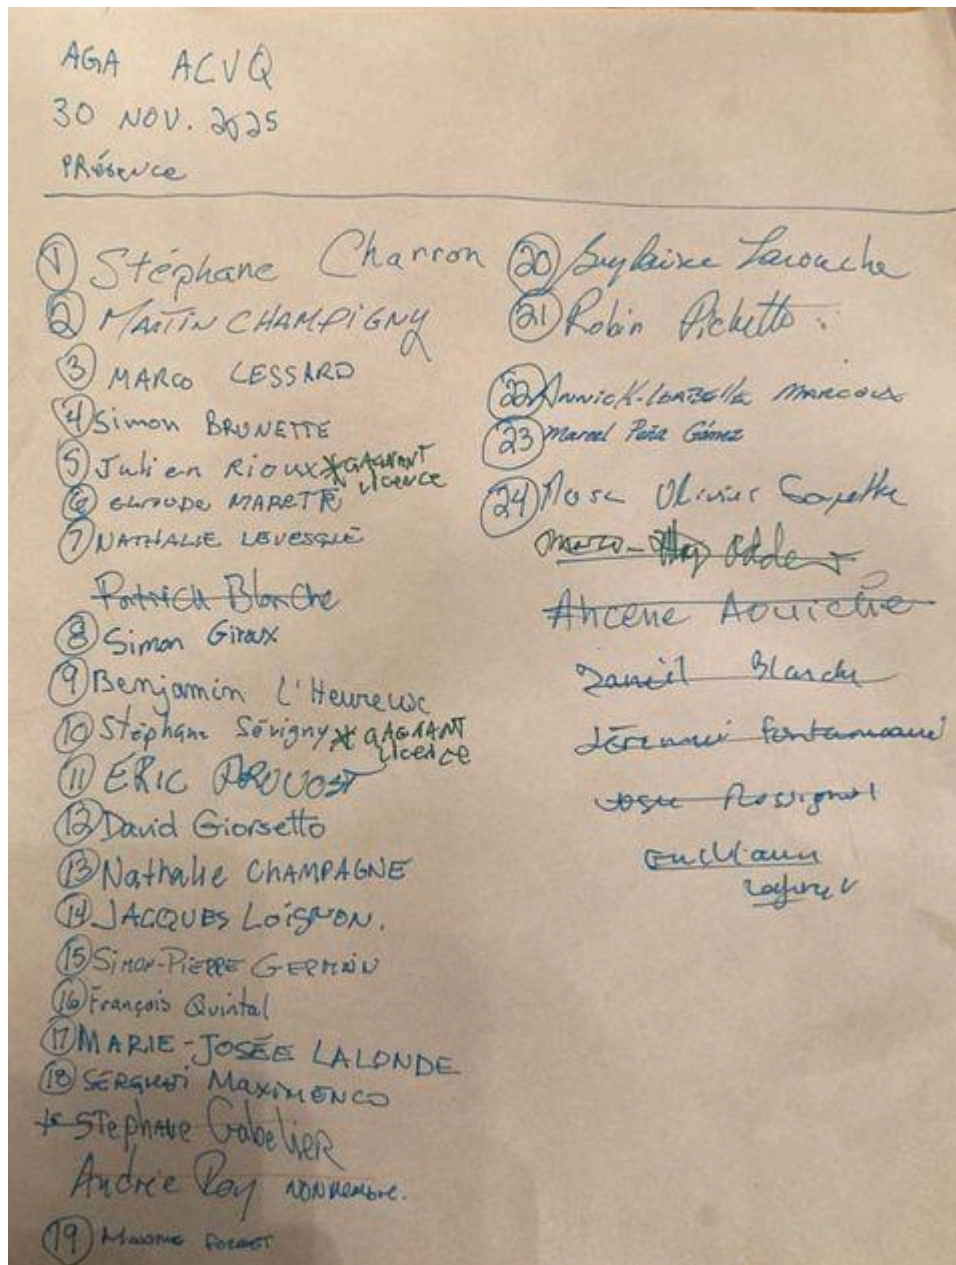 AGA ACVQ
30 NOV. 2025
PRésence
1 Stéphane Charron
2 MARTIN CHAMPIGNY
3 MARCO LESSARD
4 Simon BRUNETTE
5 Julien Rioux * GAGNANT
LICENCE
6 CLAUDE MARETTE
7 NATHALIE LEVESQUE
Patrick Blanche
8 Simon Giroux
9 Benjamin L'Heureux
10 Stéphane Sévigny * GAGNANT
LICENCE
11 ÉRIC PROVOST
12 David Giorsetto
13 Nathalie CHAMPAGNE
14 JACQUES LOIGNON.
15 SIMON-PIERRE GERMAIN
16 François Quintal
17 MARIE-JOSÉE LALONDE
18 SERGUEI MAXIMENCO
STEPHANE Gabelier
Andrée Roy NON MEMBRE.
19 FORGET
20 Guylaine Larouche
21 Robin Pichette
22 ANNICK-ISABELLE MARCOUX
23 Marcel Peña Gómez
24 Olivier
MARCO
Ahcene Aouiche
Daniel Blanche
Jérémie
Rossignol